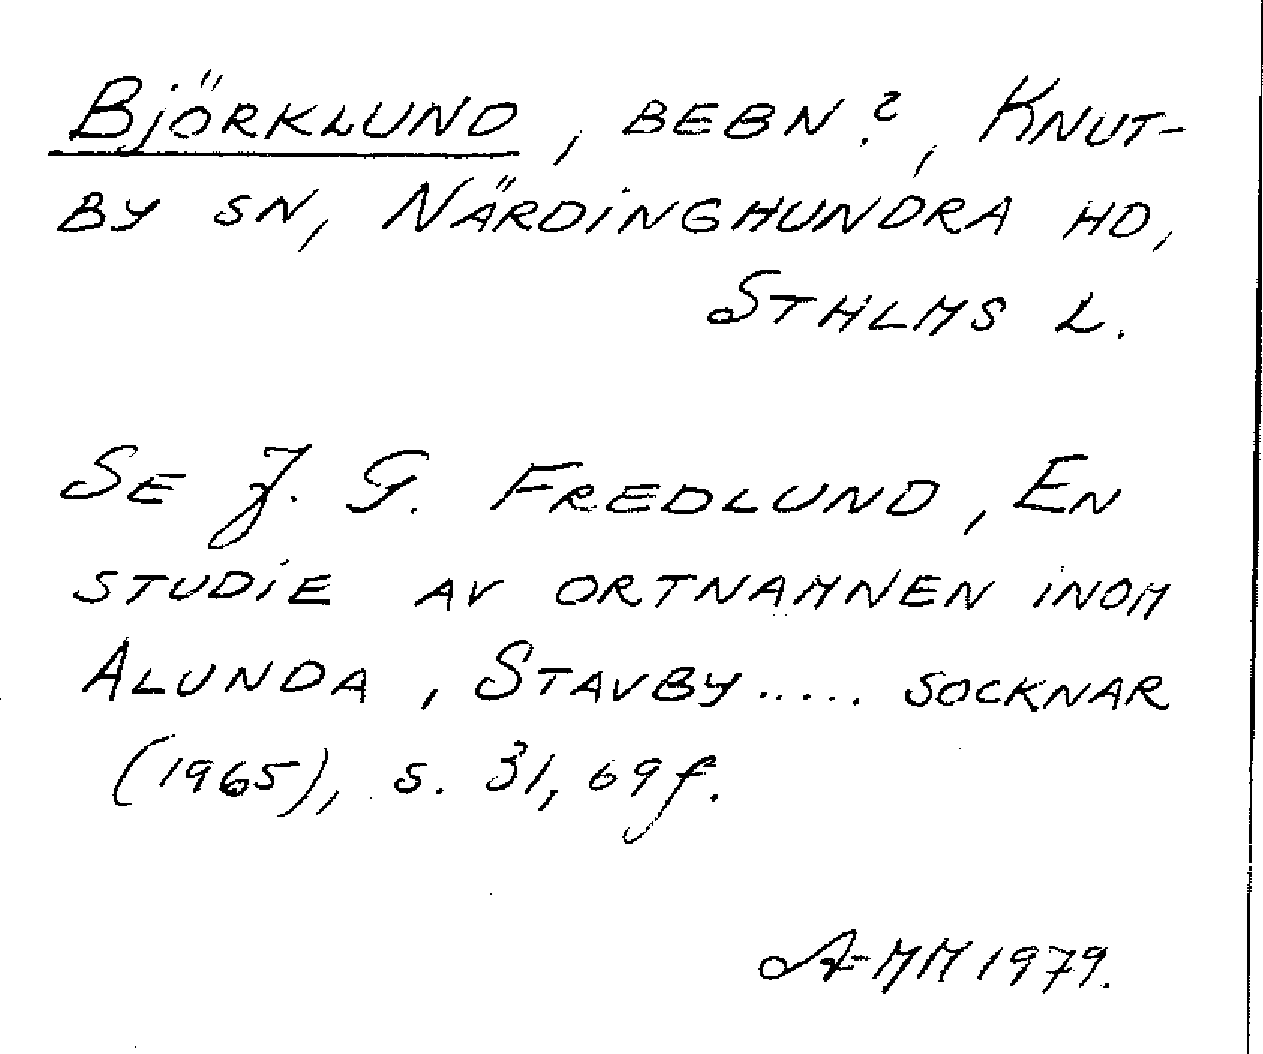 Björklund, bebn?, Knut-
by sn, Närdinghundra hd,
Sthlms l.
Se J. G. Fredlund, En
studie av ortnamnen inom
Alunda, Stavby..... socknar
(1965), s. 31, 69f.
A-MM 1979.